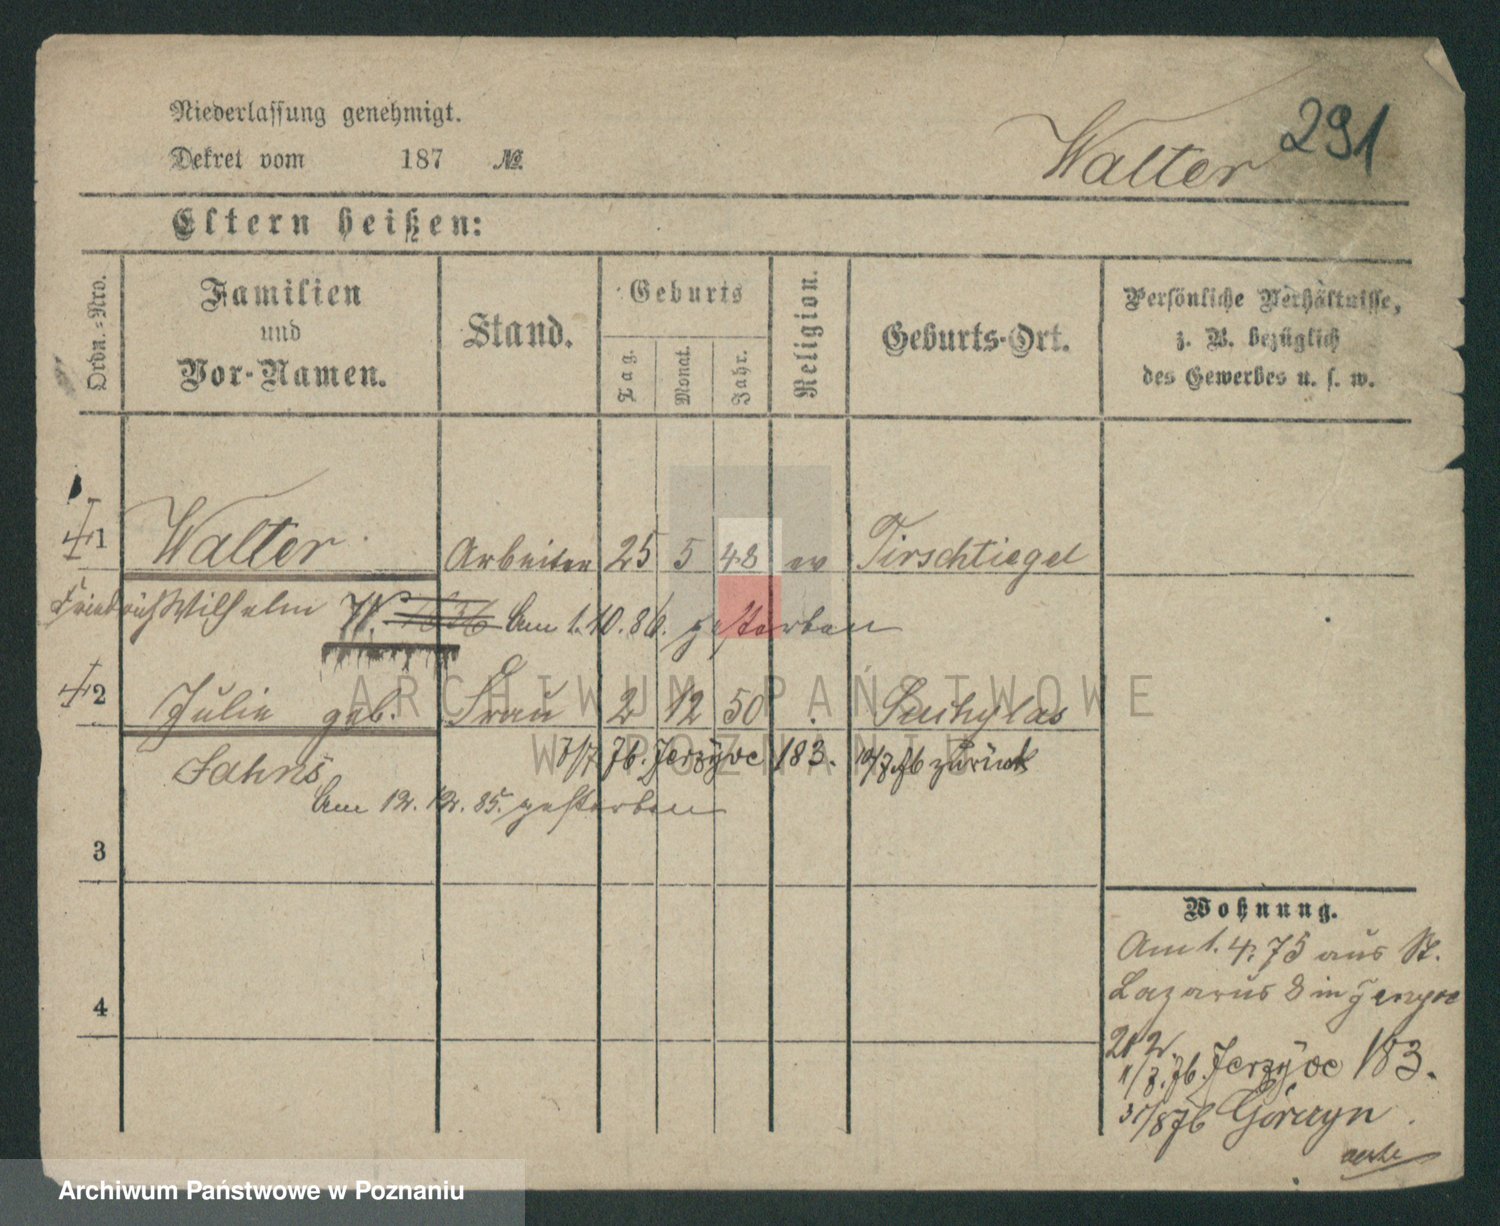 Niederlassung genehmigt.
Dekret vom 187 №
Walter 291
Eltern heißen:
Ordn.=Nro.
Familien
und
Vor-Namen.
Stand.
Geburts
Tag.
Monat.
Jahr.
Religion.
Geburts-Ort.
Persönliche Verhältnisse,
z. B. bezüglich
des Gewerbes u. s. w.
1 Walter Arbeiter 25 5 48 ev Tirschtiegel
Friedrich Wilhelm Am 1.10.86. gestorben
2 Julie geb. Frau 2 12 50
Jahns 76. Jerzyce 183. zurück
Am 12.12.85. gestorben
3
4
Wohnung.
Am 1.4.75 aus St.
Lazarus 8 in
Jerzyce 183.
31/8 76 Górczyn
ARCHIWUM PAŃSTWOWE
W POZNANIU
Archiwum Państwowe w Poznaniu